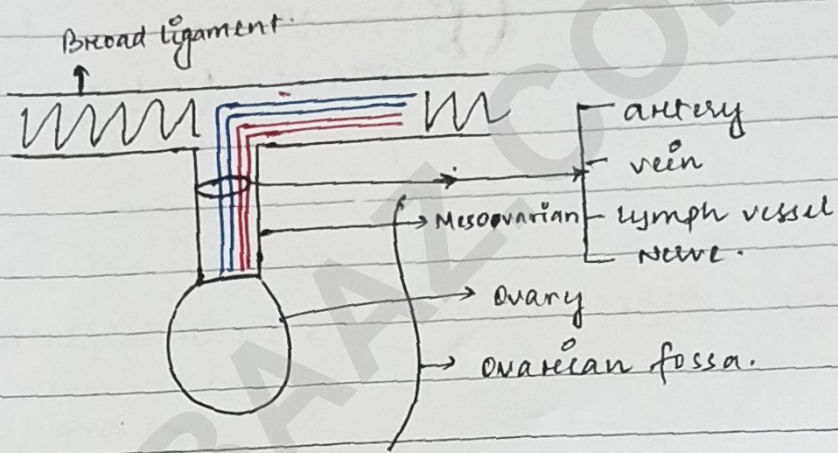 Broad ligament.
artery
vein
Mesoovarian
lymph vessel
Nerve.
Ovary
Ovarian fossa.
BAAZ.CO